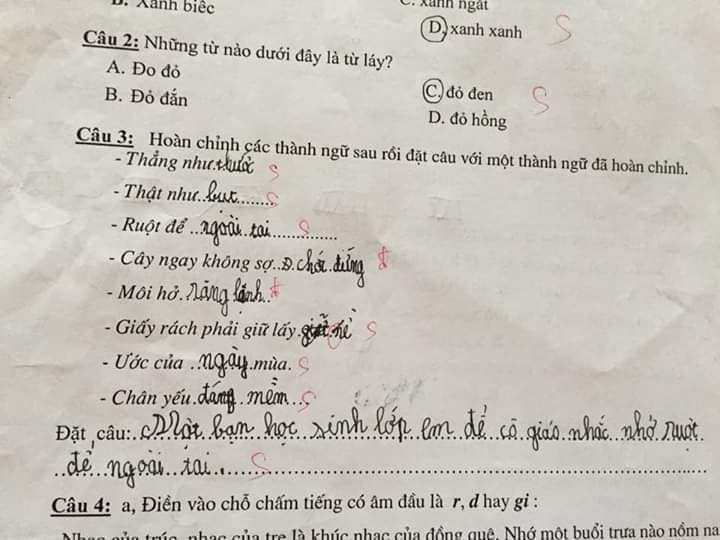 B. Xanh biếc
C. xanh ngát
D. xanh xanh S
Câu 2: Những từ nào dưới đây là từ láy?
A. Đo đỏ
B. Đỏ đắn
C. đỏ đen S
D. đỏ hồng
Câu 3: Hoàn chỉnh các thành ngữ sau rồi đặt câu với một thành ngữ đã hoàn chỉnh.
- Thẳng như thước S
- Thật như bụt S
- Ruột để ngoài tai S
- Cây ngay không sợ Đ. chết đứng đ
- Môi hở răng lạnh đ
- Giấy rách phải giữ lấy S
- Ước của ngày mùa. S
- Chân yếu đáng mềm S
Đặt câu: Một bạn học sinh lớp em để cô giáo nhắc nhở ruột
để ngoài tai. S
Câu 4: a, Điền vào chỗ chấm tiếng có âm đầu là r, d hay gi :
Nhạc của trúc, nhạc của tre là khúc nhạc của đồng quê. Nhớ một buổi trưa nào nồm na